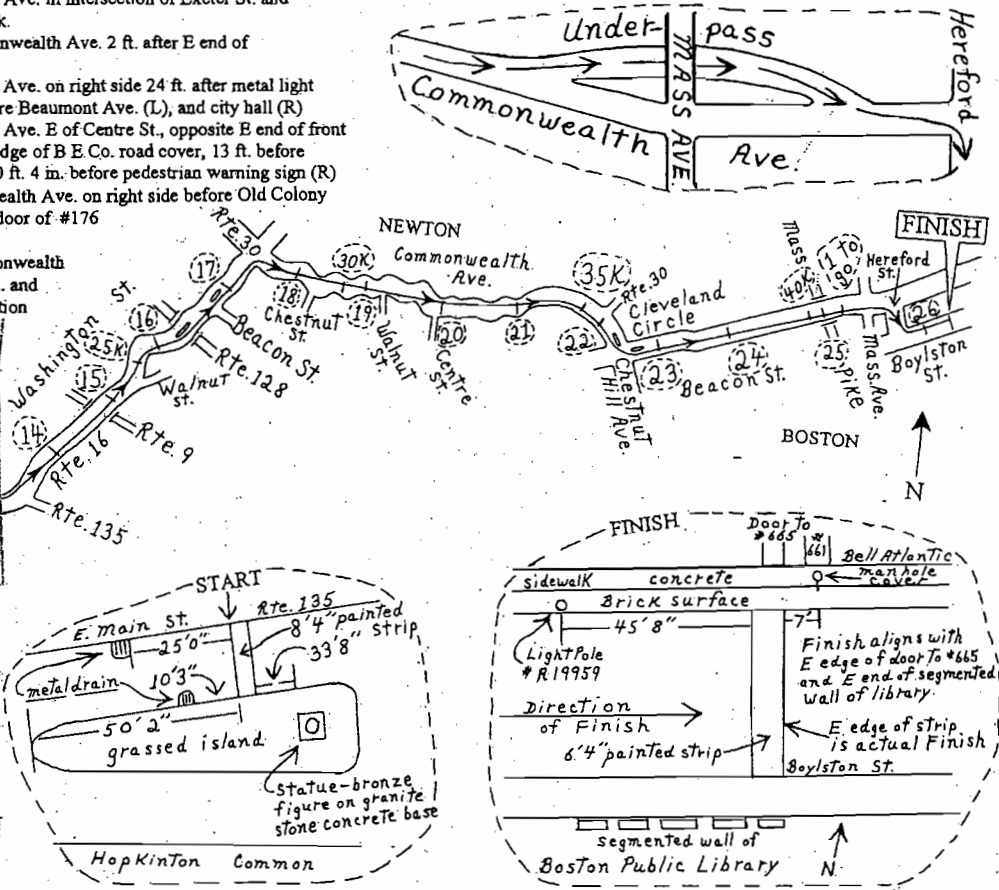 Ave. in intersection of Exeter St. and
k.
nwealth Ave. 2 ft. after E end of
Ave. on right side 24 ft. after metal light
re Beaumont Ave. (L), and city hall (R)
Ave. E of Centre St., opposite E end of front
dge of B E Co. road cover, 13 ft. before
0 ft. 4 in. before pedestrian warning sign (R)
ealth Ave. on right side before Old Colony
door of #176
onwealth
. and
tion
Under-pass
MASS AVE
Commonwealth Ave.
Hereford
NEWTON
Rte. 30
Commonwealth
Ave.
14
15
25K
16
17
18
30K
19
20
21
35K
22
23
24
40K
25
1 to go
26
Washington St.
Rte. 16
Rte. 135
Rte. 9
Walnut
St.
Rte. 128
Beacon St.
Chestnut
St.
Walnut
St.
Centre
St.
Rte. 30
Cleveland
Circle
Chestnut
Hill Ave.
Beacon St.
Mass
Pike
Mass. Ave.
Hereford
St.
Boylston
St.
FINISH
BOSTON
N
START
E. Main St.
Rte. 135
25'0"
8'4" painted
strip
33'8"
metal drain
10'3"
50'2"
grassed island
Statue-bronze
figure on granite
stone concrete base
Hopkinton Common
FINISH
Door to
#665
#
661
Bell Atlantic
manhole
cover
sidewalk
concrete
Brick surface
45'8"
7'
Light Pole
#R19959
Finish aligns with
E edge of door to #665
and E end of segmented
wall of library.
Direction
of Finish
6'4" painted strip
E edge of strip
is actual Finish
Boylston St.
segmented wall of
Boston Public Library
N